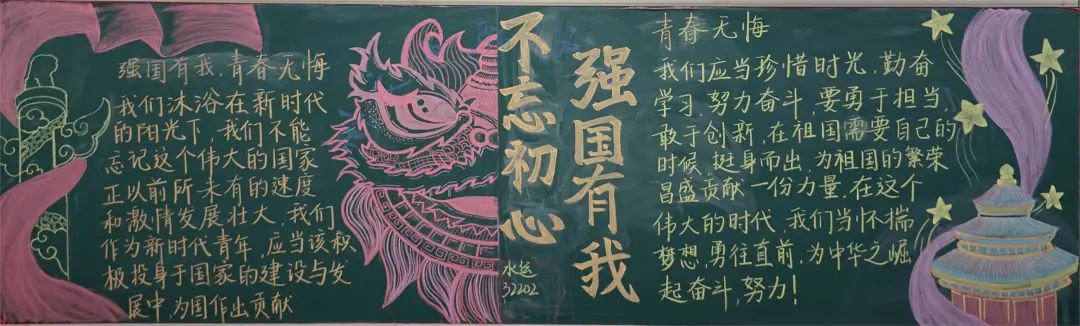 强国有我,青春无悔
我们沐浴在新时代
的阳光下,我们不能
忘记这个伟大的国家
正以前所未有的速度
和激情发展壮大,我们
作为新时代青年,应当该积
极投身于国家的建设与发
展中,为国作出贡献
不忘初心
强国有我
水运
32202
青春无悔
我们应当珍惜时光,勤奋
学习,努力奋斗,要勇于担当,
敢于创新,在祖国需要自己的
时候,挺身而出,为祖国的繁荣
昌盛贡献一份力量.在这个
伟大的时代,我们当怀揣
梦想,勇往直前,为中华之崛
起奋斗,努力!